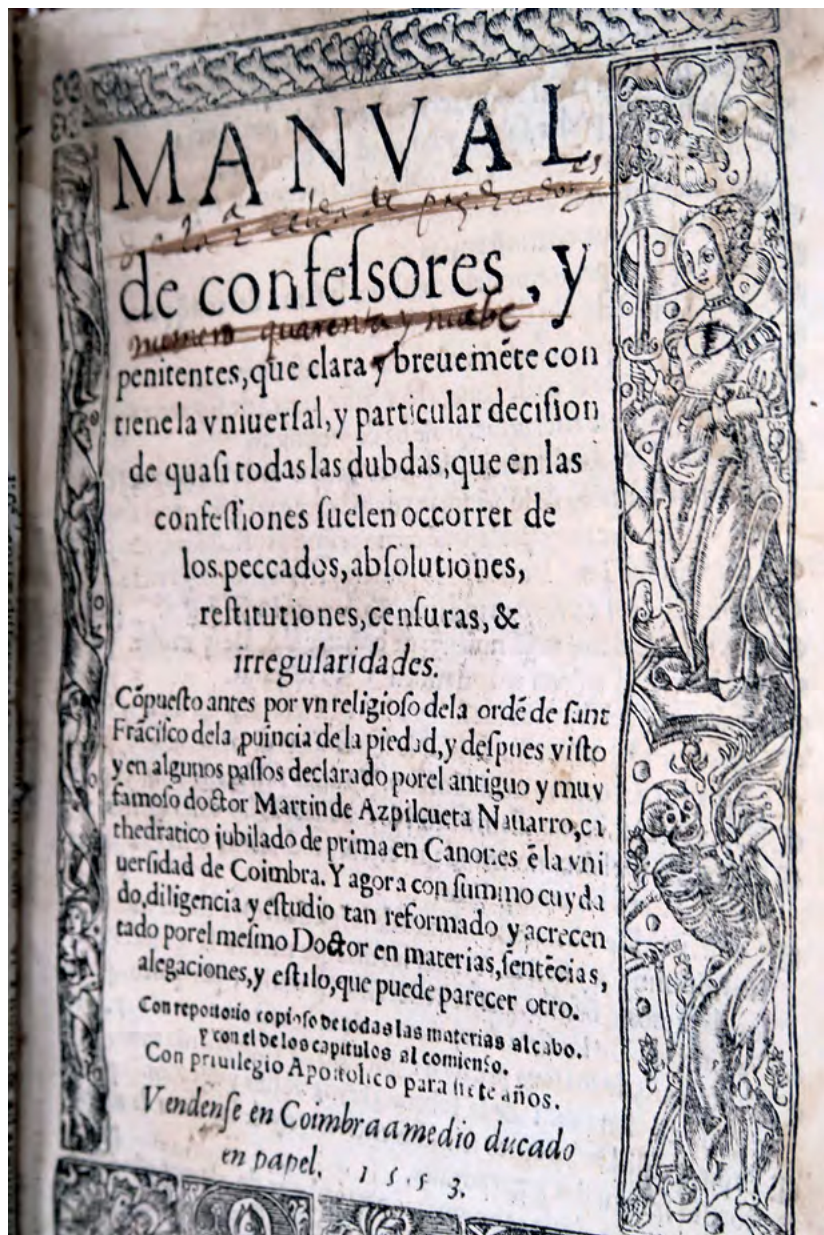 MANVAL
de confeſſores, y
numero quarenta y nuebe
penitentes, que clara y breuemẽte con
tiene la vniuerſal, y particular deciſion
de quaſi todas las dubdas, que en las
confeſſiones ſuelen occorrer de
los peccados, abſolutiones,
reſtitutiones, cenſuras, &
irregularidades.
Cõpueſto antes por vn religioſo dela ordẽ de ſant
Frãciſco dela ꝓuincia de la piedad, y deſpues viſto
y en algunos paſſos declarado porel antiguo y muy
famoſo doctor Martin de Azpilcueta Nauarro, ca
thedratico iubilado de prima en Canones ẽ la vni
uerſidad de Coimbra. Y agora con ſummo cuyda
do, diligencia y eſtudio tan reformado y acrecen
tado porel meſmo Doctor en materias, ſentẽcias,
alegaciones, y eſtilo, que puede parecer otro.
Con reportorio copioſo de todas las materias al cabo.
Y con el de los capitulos al comienſo.
Con priuilegio Apoſtolico para ſiete años.
Vendenſe en Coimbra a medio ducado
en papel. 1553.